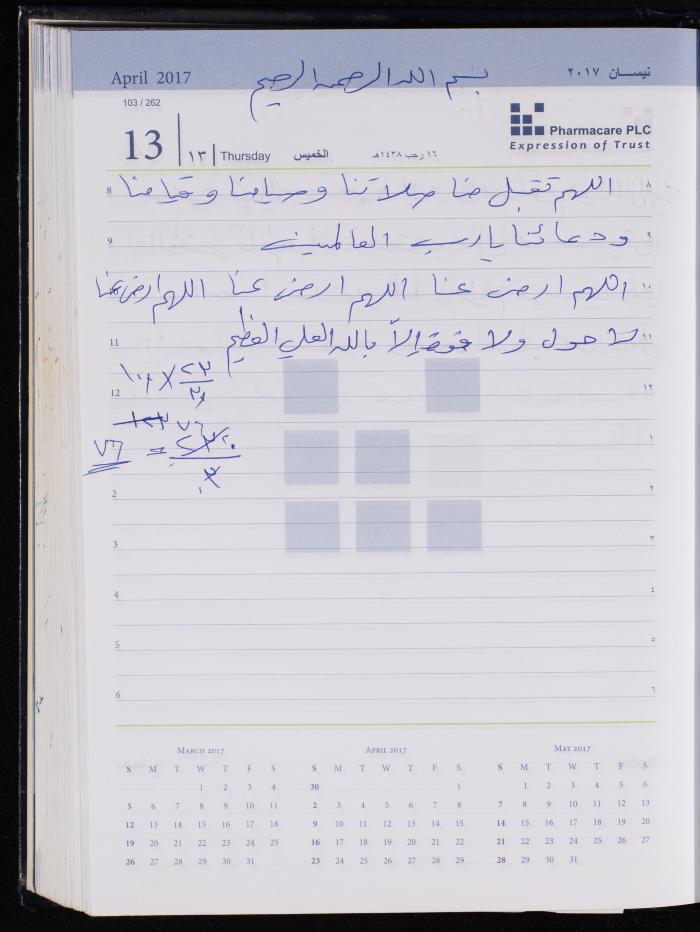 April 2017
بسم الله الرحمن الرحيم
نيسـان ٢٠١٧
103 / 262
13 | ١٣ | Thursday الخميس ١٦ رجب ١٤٣٨هـ
Pharmacare PLC
Expression of Trust
8 اللهم تقبل منا صلاتنا وصيامنا وقيامنا ٨
9 ودعائنا يارب العالمين ٩
اللهم ارض عنا اللهم ارض عنا اللهم ارض عنا ١٠
11 لا حول ولا قوة إلا بالله العلي العظيم ١١
12 ١٢
١
٧٦ =
2 ٢
3 ٣
4 ٤
5 ٥
6 ٦
March 2017
S M T W T F S
1 2 3 4
5 6 7 8 9 10 11
12 13 14 15 16 17 18
19 20 21 22 23 24 25
26 27 28 29 30 31
April 2017
S M T W T F S
30 1
2 3 4 5 6 7 8
9 10 11 12 13 14 15
16 17 18 19 20 21 22
23 24 25 26 27 28 29
May 2017
S M T W T F S
1 2 3 4 5 6
7 8 9 10 11 12 13
14 15 16 17 18 19 20
21 22 23 24 25 26 27
28 29 30 31